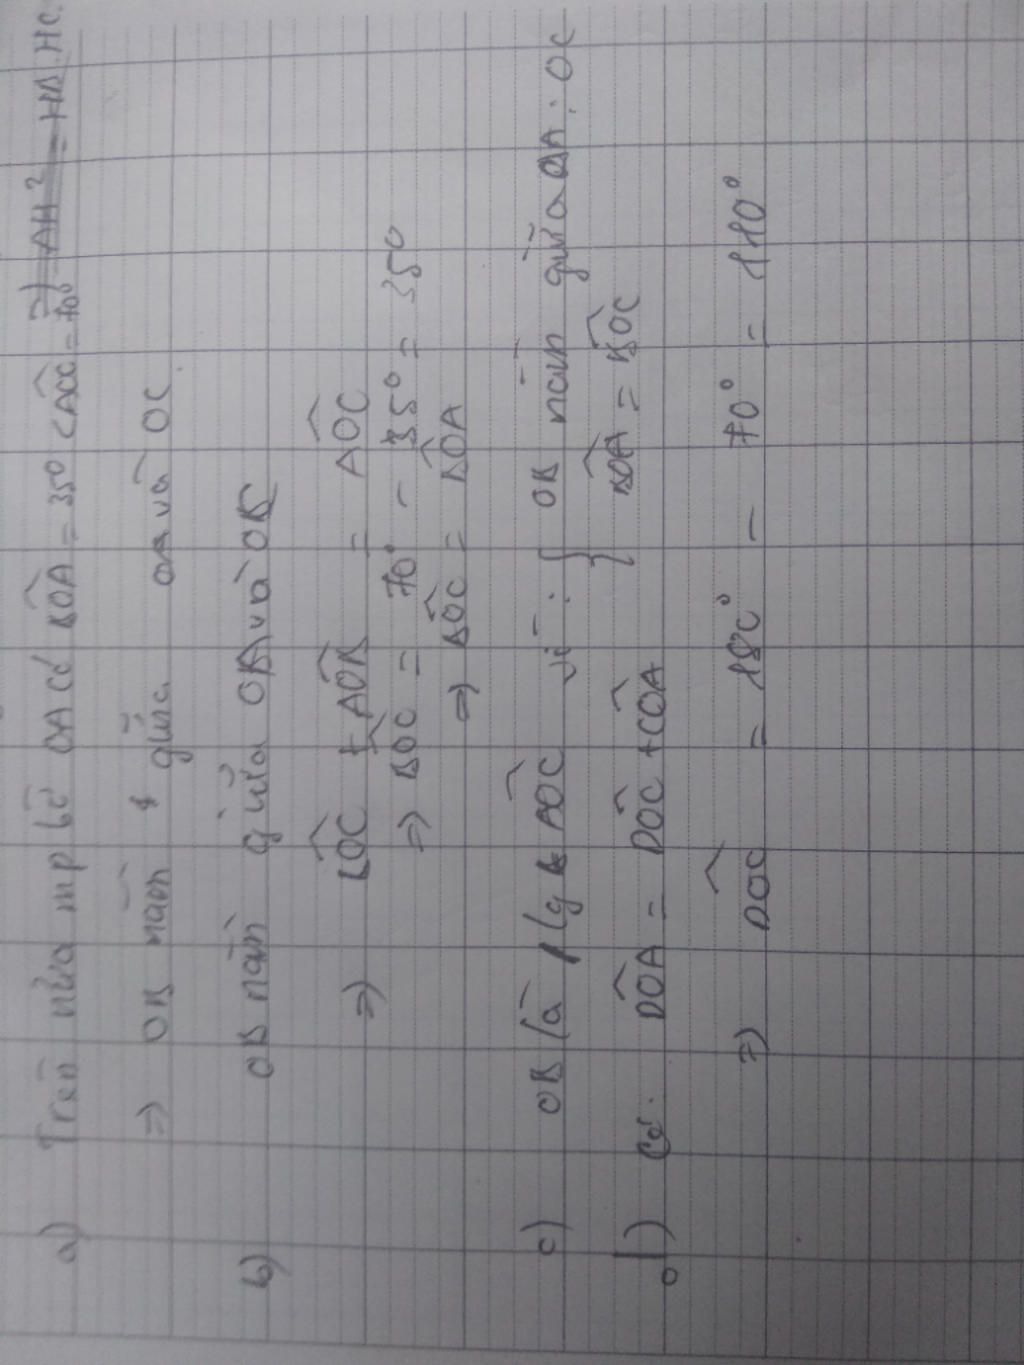 a) Trên nửa mp bờ OA có BOA = 35° < AOC = 70° => AH² = HB.HC
=> OB nằm giữa OA và OC
b) OB nằm giữa OA và OB
=> BOC + AOB = AOC
=> BOC = 70° - 35° = 35°
=> BOC = BOA
c) OB là plg AOC vì: { OB nằm giữa OA; OC
BOA = BOC
d) Có: DOA = DOC + COA
=> DOC = 180° - 70° = 110°